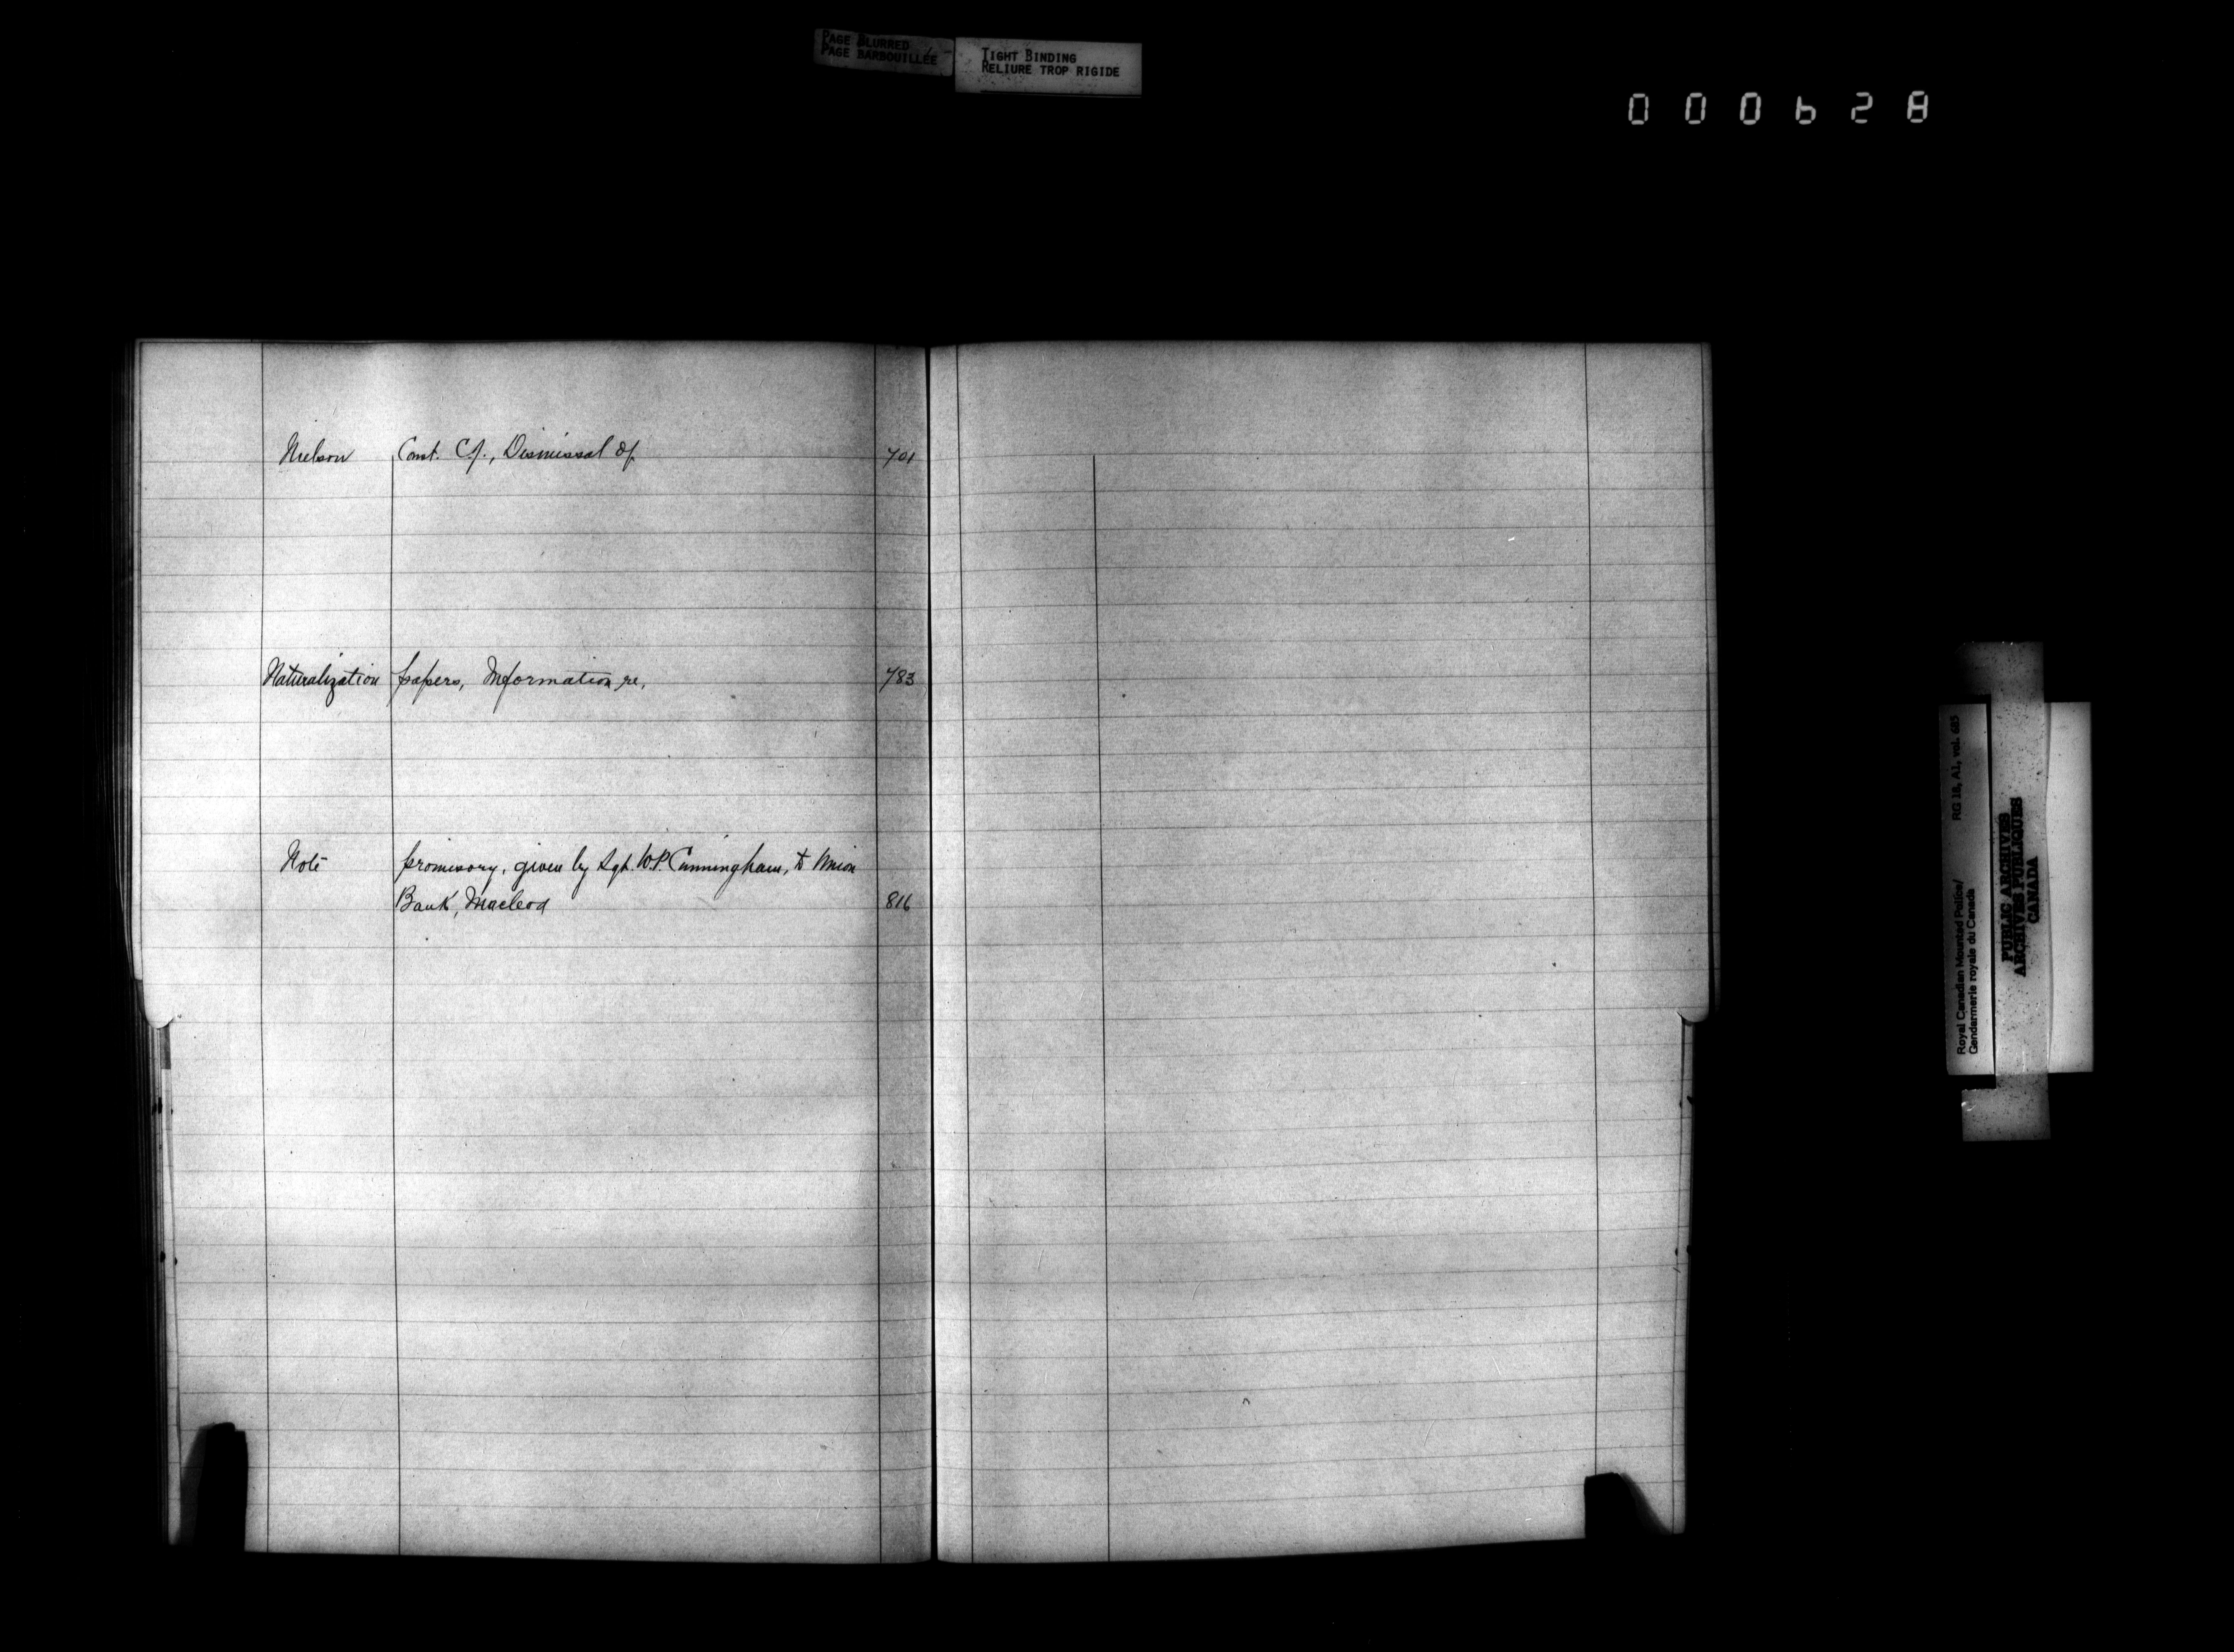 PAGE BLURRED
PAGE BARBOUILLÉE
TIGHT BINDING
RELIURE TROP RIGIDE
000628
Nielson Const. C.J., Dismissal of 701
Naturalization papers, Information re, 783
Note promissory, given by Sgt. W.P. Cunningham, to Union
Bank, Macleod 816
Royal Canadian Mounted Police/ RG 18, A1, vol. 685
Gendarmerie royale du Canada
PUBLIC ARCHIVES
ARCHIVES PUBLIQUES
CANADA